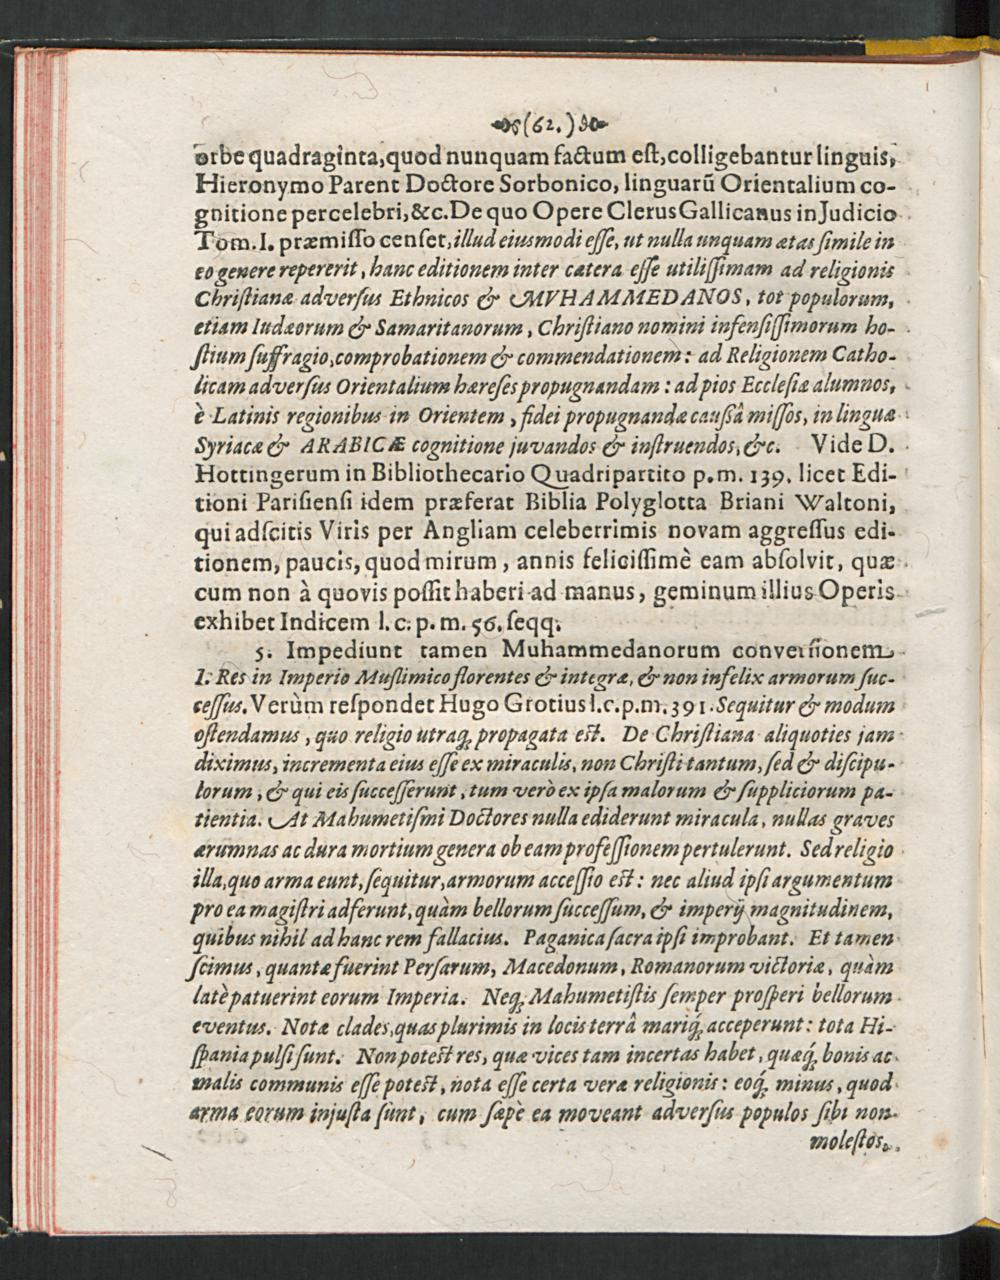 (62.)
orbe quadraginta, quod nunquam factum est, colligebantur linguis,
Hieronymo Parent Doctore Sorbonico, linguarũ Orientalium co-
gnitione percelebri, &c. De quo Opere Clerus Gallicanus in Judicio
Tom. I. præmisso censet, illud eiusmodi esse, ut nulla unquam ætas simile in
eo genere repererit, hanc editionem inter cætera esse utilissimam ad religionis
Christianæ adversus Ethnicos & MVHAMMEDANOS, tot populorum,
etiam Iudæorum & Samaritanorum, Christiano nomini infensissimorum ho-
stium suffragio, comprobationem & commendationem: ad Religionem Catho-
licam adversus Orientalium hæreses propugnandam: ad pios Ecclesiæ alumnos,
è Latinis regionibus in Orientem, fidei propugnandæ caussâ missos, in linguæ
Syriacæ & ARABICÆ cognitione juvandos & instruendos, &c. Vide D.
Hottingerum in Bibliothecario Quadripartito p. m. 139. licet Edi-
tioni Parisiensi idem præferat Biblia Polyglotta Briani Waltoni,
qui adscitis Viris per Angliam celeberrimis novam aggressus edi-
tionem, paucis, quod mirum, annis felicissimè eam absolvit, quæ
cum non à quovis possit haberi ad manus, geminum illius Operis
exhibet Indicem l. c. p. m. 56. seqq.
5. Impediunt tamen Muhammedanorum conversionem
1. Res in Imperio Muslimico florentes & integræ, & non infelix armorum suc-
cessus. Verùm respondet Hugo Grotius l. c. p. m. 391. Sequitur & modum
ostendamus, quo religio utraq; propagata est. De Christiana aliquoties jam
diximus, incrementa eius esse ex miraculis, non Christi tantum, sed & discipu-
lorum, & qui eis successerunt, tum verò ex ipsa malorum & suppliciorum pa-
tientia. At Mahumetismi Doctores nulla ediderunt miracula, nullas graves
ærumnas ac dura mortium genera ob eam professionem pertulerunt. Sed religio
illa, quo arma eunt, sequitur, armorum accessio est: nec aliud ipsi argumentum
pro ea magistri adferunt, quàm bellorum successum, & imperij magnitudinem,
quibus nihil ad hanc rem fallacius. Paganica sacra ipsi improbant. Et tamen
scimus, quantæ fuerint Persarum, Macedonum, Romanorum victoriæ, quàm
latè patuerint eorum Imperia. Neq; Mahumetistis semper prosperi bellorum
eventus. Notæ clades, quas plurimis in locis terrâ mariq́; acceperunt: tota Hi-
spania pulsi sunt. Non potest res, quæ vices tam incertas habet, quæq́; bonis ac
malis communis esse potest, nota esse certa veræ religionis: eoq́; minus, quod
arma eorum injusta sunt, cum sæpè ea moveant adversus populos sibi non
molestos,